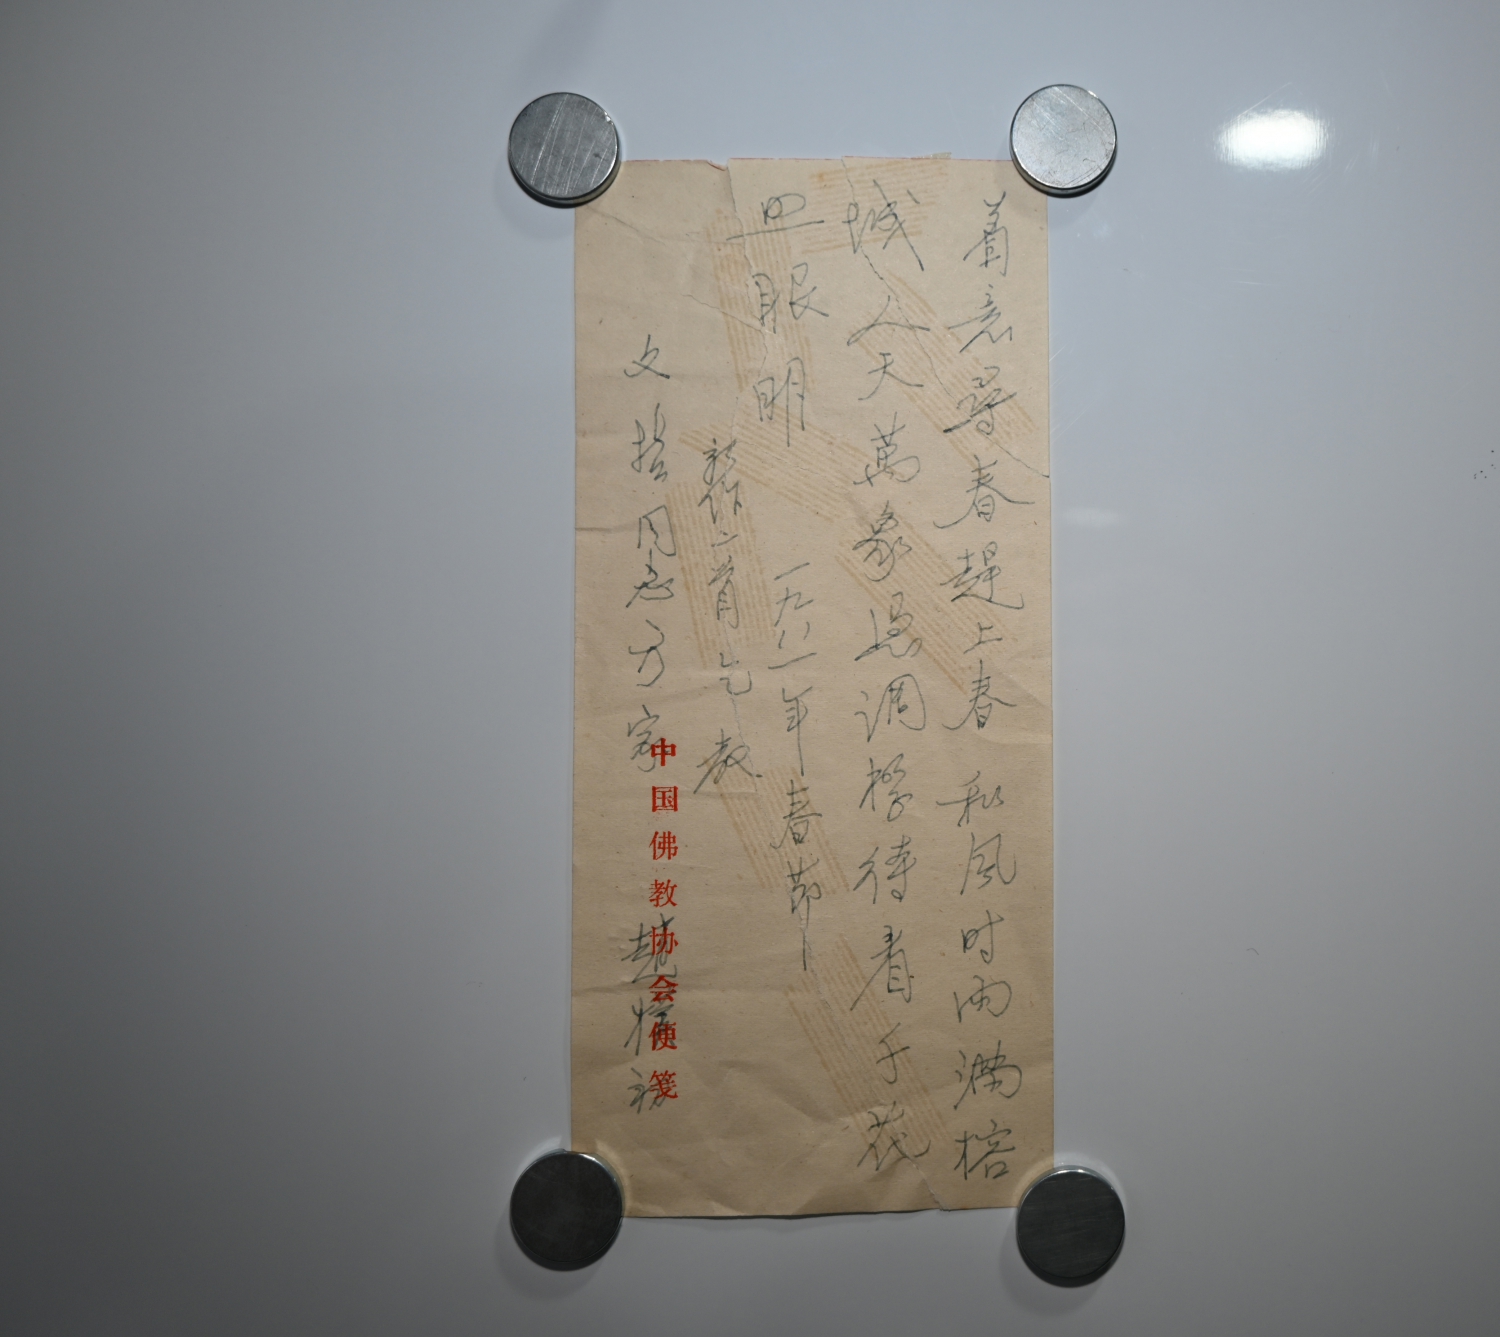 着意尋春趕上春 和風时雨满榕
城人天萬象憑調撥待看千花
照眼明
一九八一年春節
新作二首乞教
文拾同志方家
趙樸初
中国佛教协会便笺